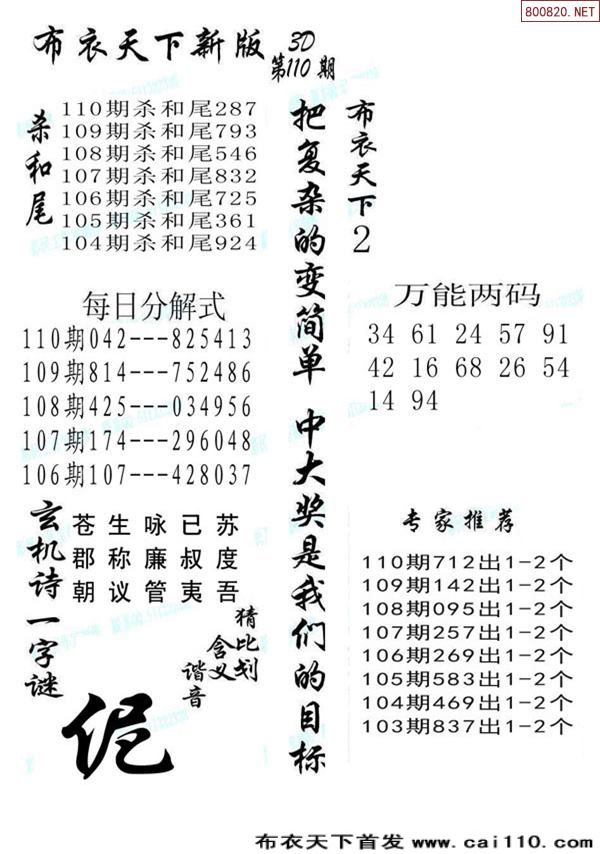 800820.NET
布衣天下新版
3D
第110期
杀和尾
110期杀和尾287
109期杀和尾793
108期杀和尾546
107期杀和尾832
106期杀和尾725
105期杀和尾361
104期杀和尾924
把复杂的变简单 中大奖是我们的目标
布衣天下2
每日分解式
110期042---825413
109期814---752486
108期425---034956
107期174---296048
106期107---428037
万能两码
34 61 24 57 91
42 16 68 26 54
14 94
玄机诗一字谜
苍生咏已苏
郡称廉叔度
朝议管夷吾
猜比划
含义
谐音
伲
专家推荐
110期712出1-2个
109期142出1-2个
108期095出1-2个
107期257出1-2个
106期269出1-2个
105期583出1-2个
104期469出1-2个
103期837出1-2个
布衣天下首发 www.cai110.com